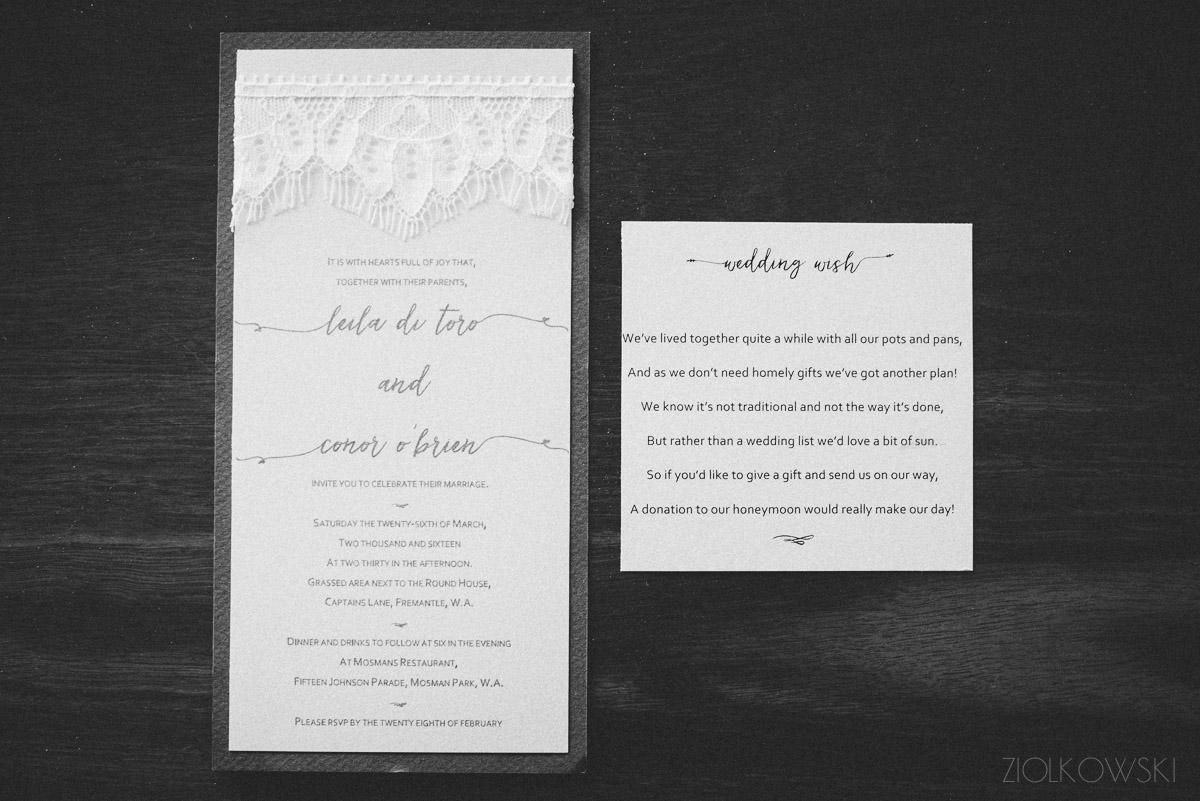 It is with hearts full of joy that,
together with their parents,
leila di toro
and
conor o'brien
invite you to celebrate their marriage.
Saturday the twenty-sixth of March,
Two thousand and sixteen
At two thirty in the afternoon.
Grassed area next to the Round House,
Captains Lane, Fremantle, W.A.
Dinner and drinks to follow at six in the evening
At Mosmans Restaurant,
Fifteen Johnson Parade, Mosman Park, W.A.
Please rsvp by the twenty eighth of february
wedding wish
We've lived together quite a while with all our pots and pans,
And as we don't need homely gifts we've got another plan!
We know it's not traditional and not the way it's done,
But rather than a wedding list we'd love a bit of sun.
So if you'd like to give a gift and send us on our way,
A donation to our honeymoon would really make our day!
ZIOLKOWSKI